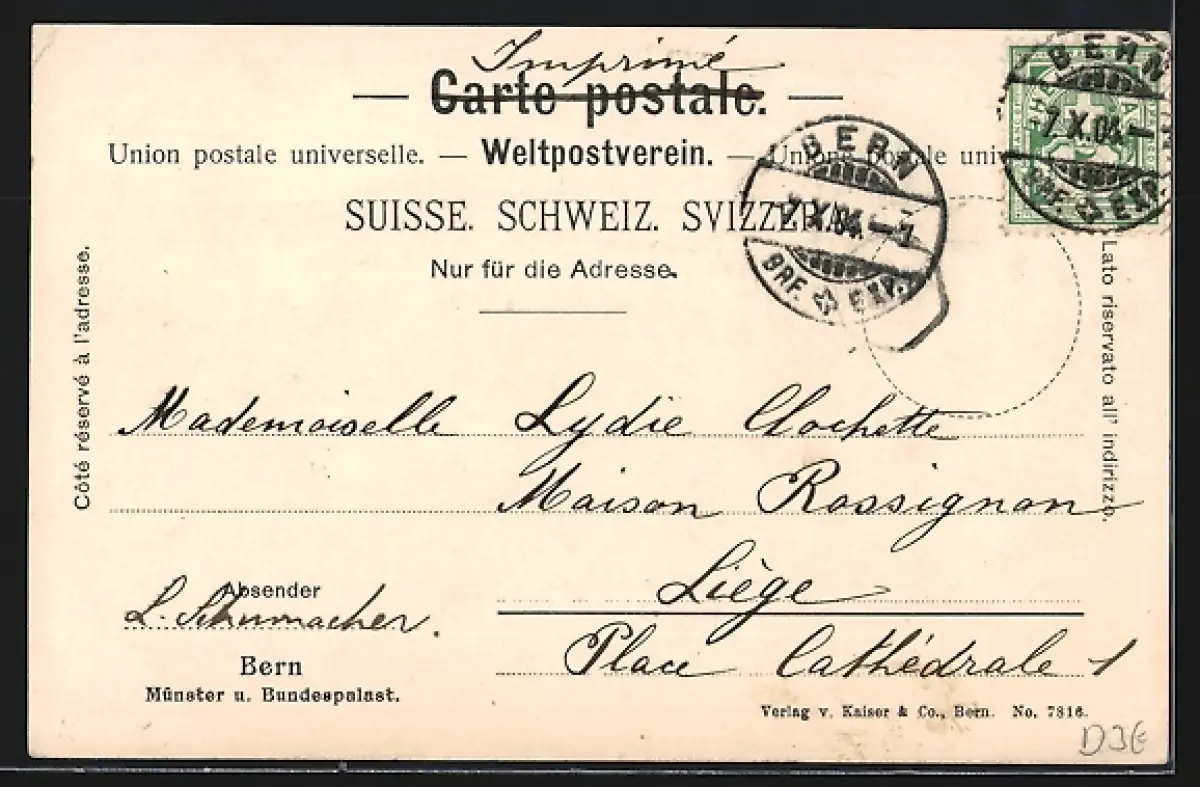 Imprimé
Carte postale.
Union postale universelle. — Weltpostverein. — Unione postale univ
SUISSE. SCHWEIZ. SVIZZERA.
Nur für die Adresse.
BERN
7.X.04.—7
BRF. EXP.
BERN
7.X.04.—
BRF. EXP.
Côté réservé à l'adresse.
Lato riservato all' indirizzo.
Mademoiselle Lydie Clochette
Maison Rossignon
Liège
Place Cathédrale 1
Absender
L. Schumacher.
Bern
Münster u. Bundespalast.
Verlag v. Kaiser & Co., Bern. No. 7816.
DJE